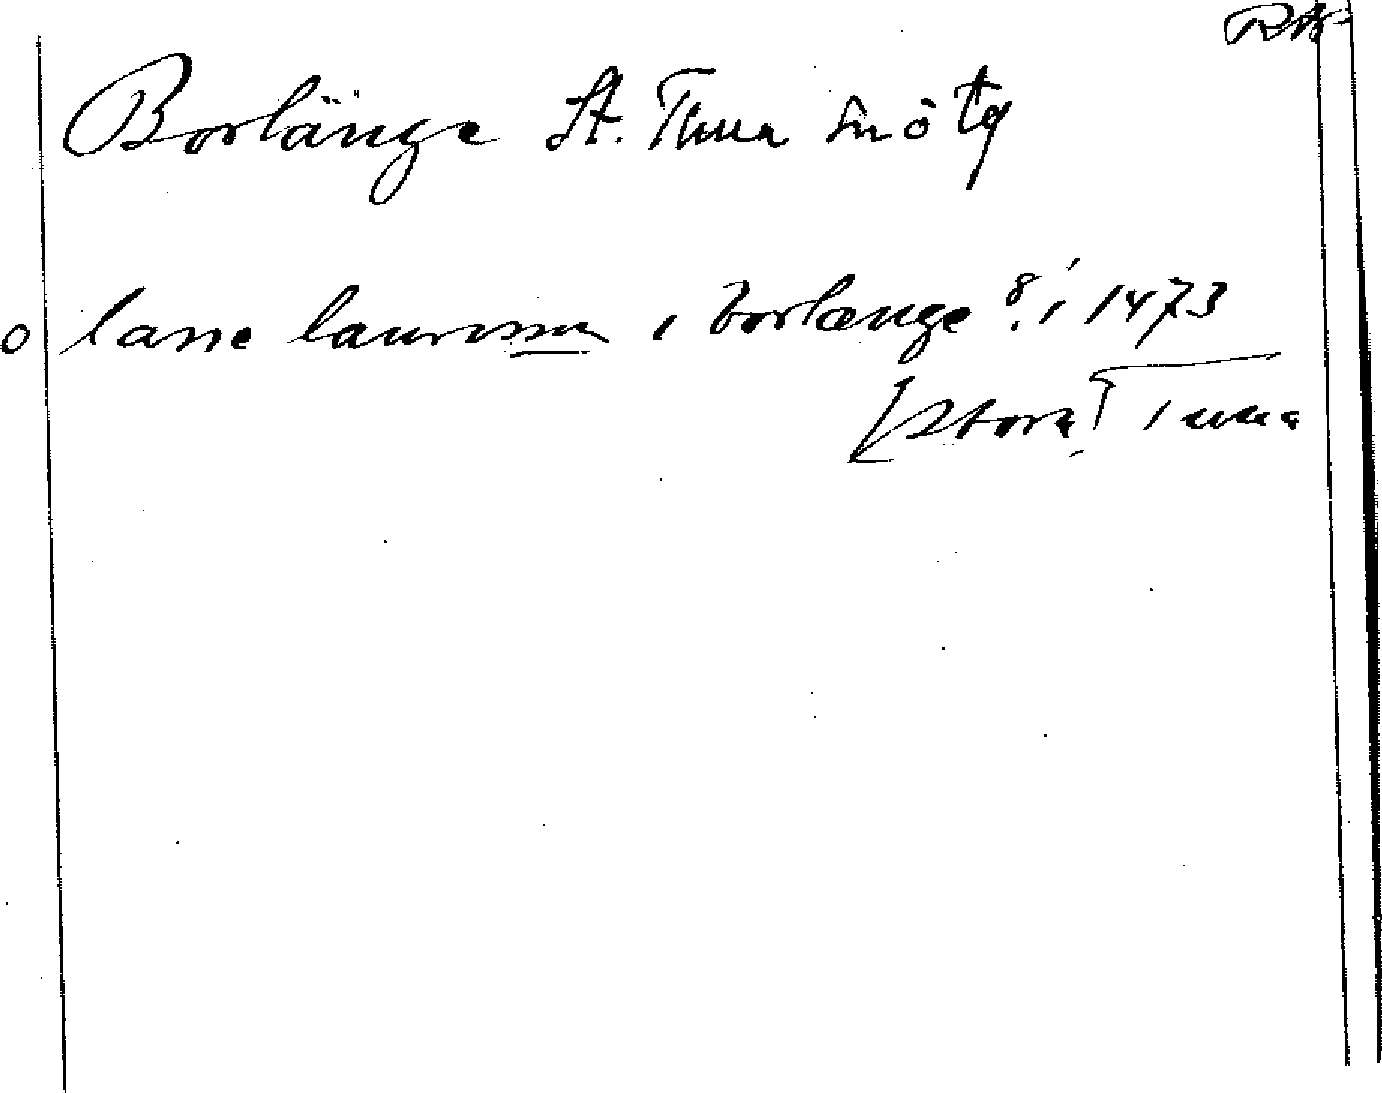 Borlänge St. Tuna sn ö tg
o lasse laurensson i borlænge 8/1 1473
[Stora Tuna